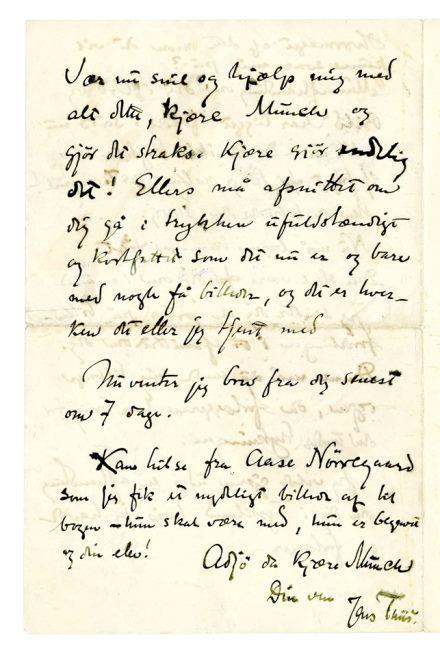 Vær nu snil og hjælp mig med
alt dette, kjære Munch og
gjör det straks. Kjære gjör endelig
det! Ellers må afsnittet om
dig gå i trykken ufuldstændigt
og kortfattet som det nu er og bare
med nogle få billeder, og det er hver-
ken du eller jeg tjent med
Nu venter jeg brev fra dig senest
om 7 dage.
Kan hilse fra Aase Nörregaard
som jeg fik et nydeligt billede af til
bogen – hun skal være med, hun er
og din elev!
Adjö da kjære Munch
Din ven
Jens Thiis.